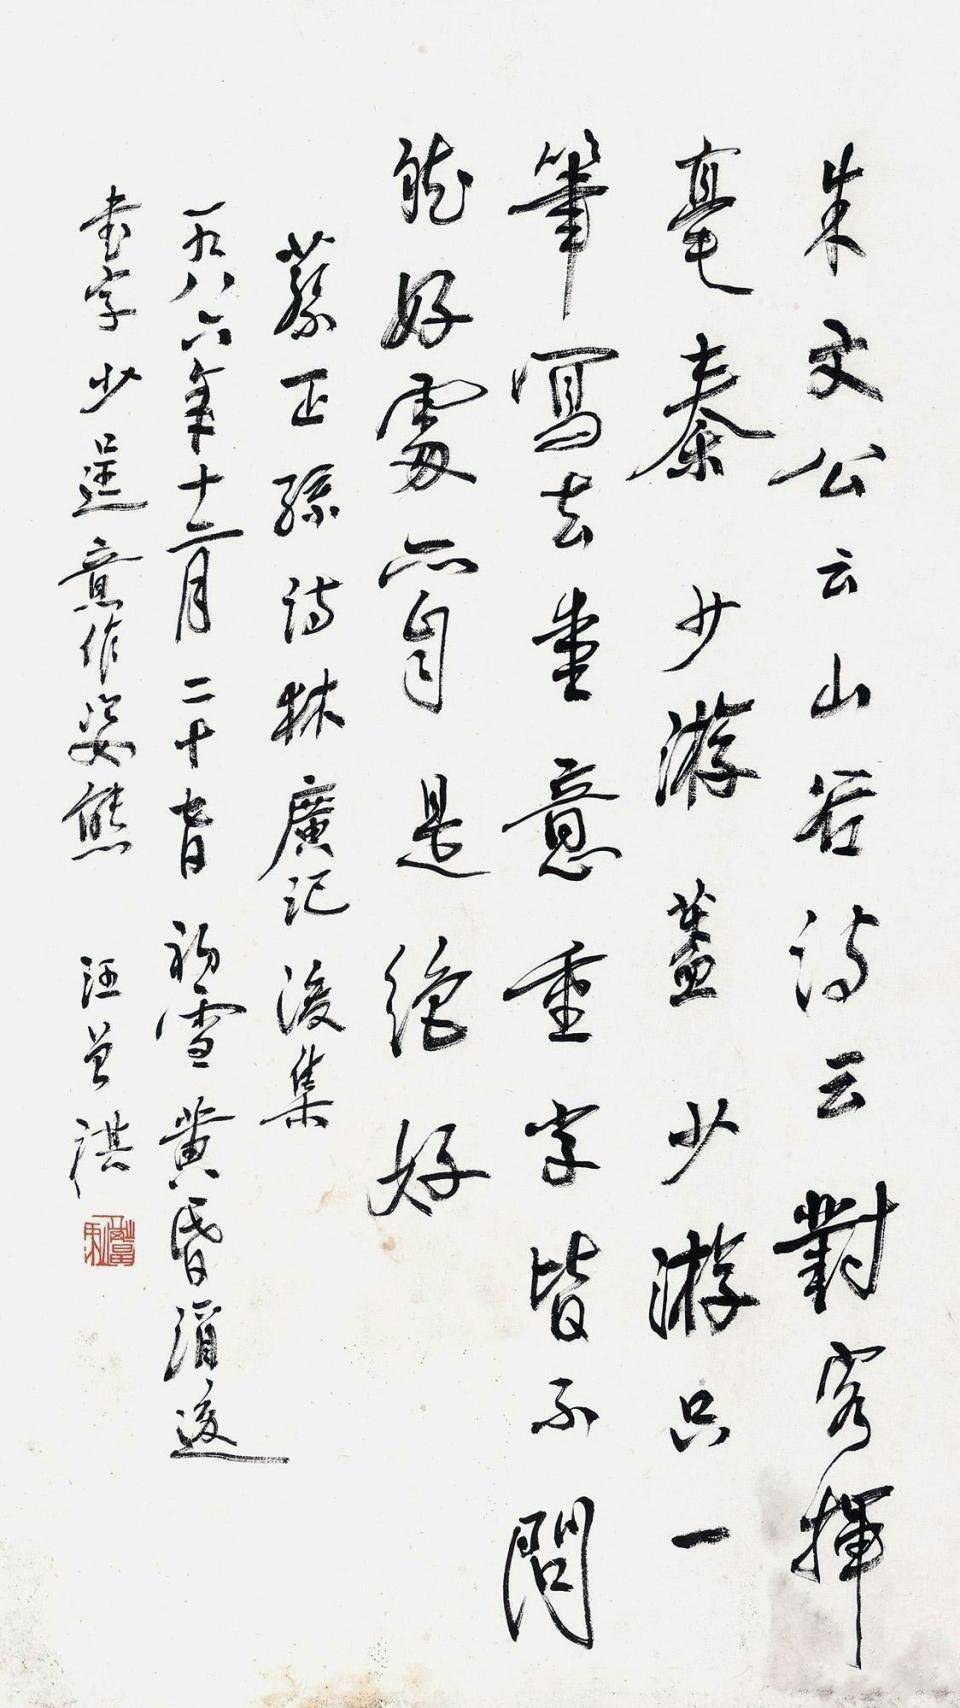 朱文公云山谷诗云對客揮
毫秦少游蓋少游只一
筆寫去重意重字皆不問
然好處亦自是絕好
蔡正孫诗林廣记後集
一九八六年十二月二十七日初雪黄昏酒後
書字少逞意作姿態 汪曾祺